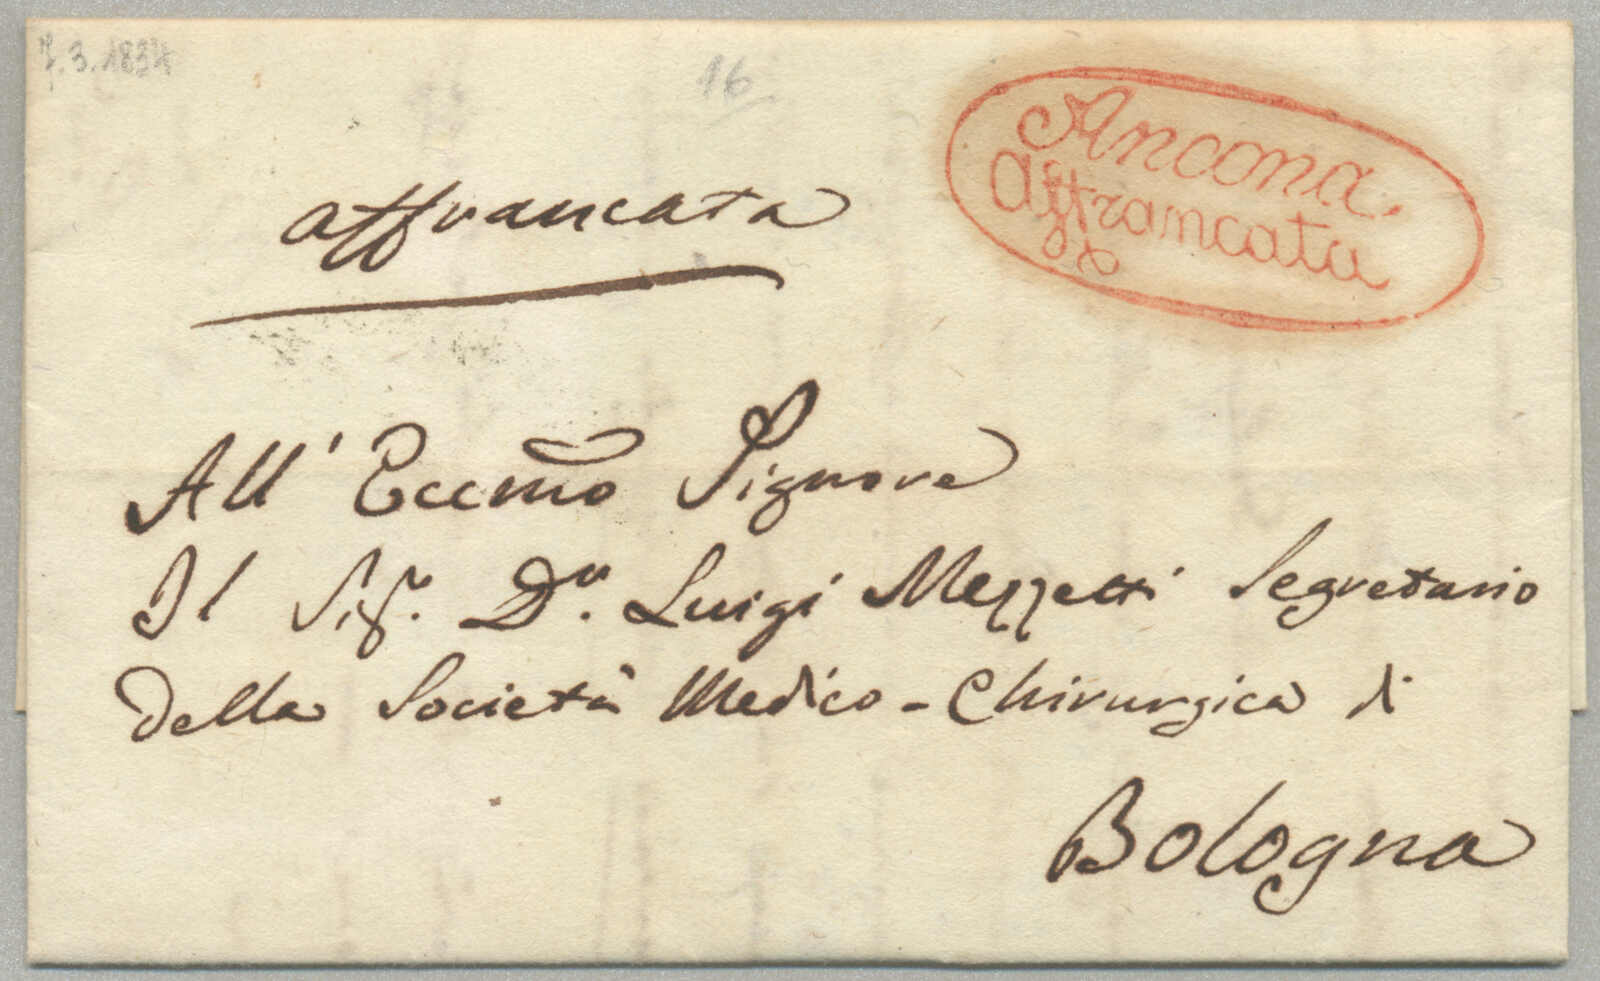 7.3.1834
16
Ancona.
Affrancata
affrancata
All' Eccmo Signore
Il Sigr. Dr. Luigi Mezzetti Segretario
Della Società Medico-Chirurgica di
Bologna